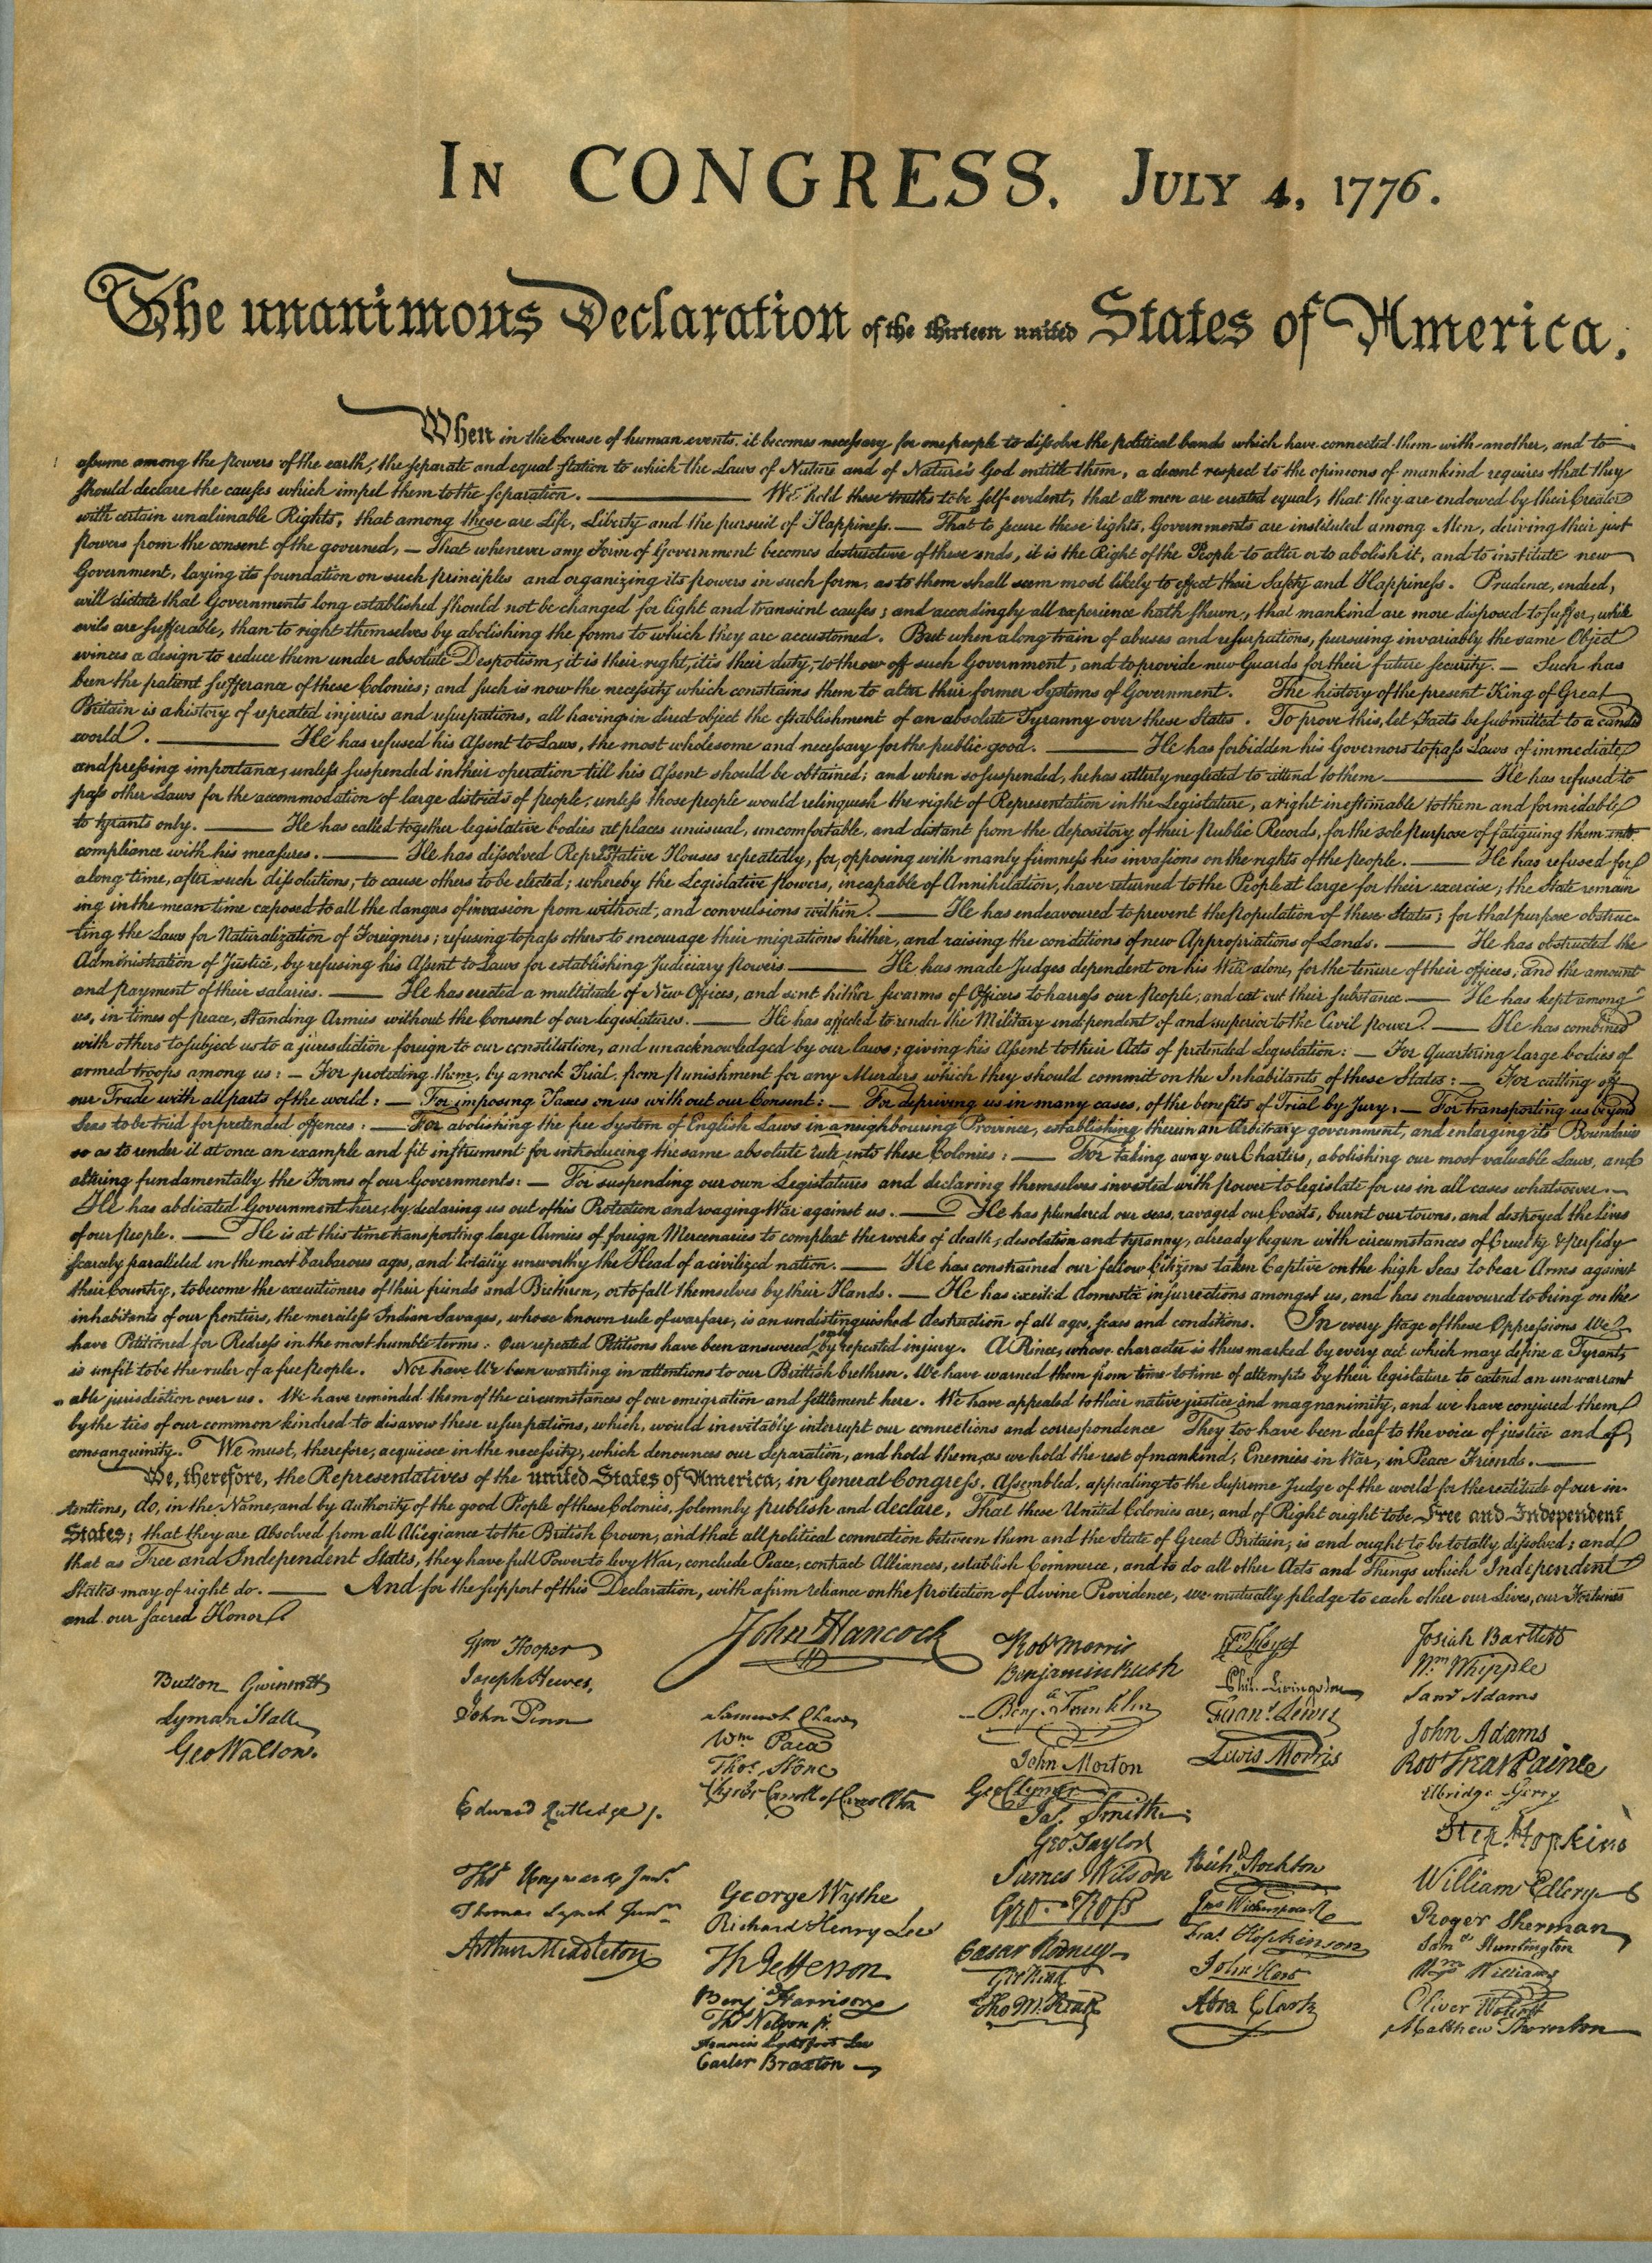 In CONGRESS, July 4, 1776.
The unanimous Declaration of the thirteen united States of America,
When in the Course of human events, it becomes necessary for one people to dissolve the political bands which have connected them with another, and to
assume among the powers of the earth, the separate and equal station to which the Laws of Nature and of Nature's God entitle them, a decent respect to the opinions of mankind requires that they
should declare the causes which impel them to the separation. — We hold these truths to be self-evident, that all men are created equal, that they are endowed by their Creator
with certain unalienable Rights, that among these are Life, Liberty and the pursuit of Happiness. — That to secure these rights, Governments are instituted among Men, deriving their just
powers from the consent of the governed, — That whenever any Form of Government becomes destructive of these ends, it is the Right of the People to alter or to abolish it, and to institute new
Government, laying its foundation on such principles and organizing its powers in such form, as to them shall seem most likely to effect their Safety and Happiness. Prudence, indeed,
will dictate that Governments long established should not be changed for light and transient causes; and accordingly all experience hath shewn, that mankind are more disposed to suffer, while
evils are sufferable, than to right themselves by abolishing the forms to which they are accustomed. But when a long train of abuses and usurpations, pursuing invariably the same Object
evinces a design to reduce them under absolute Despotism, it is their right, it is their duty, to throw off such Government, and to provide new Guards for their future security. — Such has
been the patient sufferance of these Colonies; and such is now the necessity which constrains them to alter their former Systems of Government. The history of the present King of Great
Britain is a history of repeated injuries and usurpations, all having in direct object the establishment of an absolute Tyranny over these States. To prove this, let Facts be submitted to a candid
world. — He has refused his Assent to Laws, the most wholesome and necessary for the public good. — He has forbidden his Governors to pass Laws of immediate
and pressing importance, unless suspended in their operation till his Assent should be obtained; and when so suspended, he has utterly neglected to attend to them. — He has refused to
pass other Laws for the accommodation of large districts of people, unless those people would relinquish the right of Representation in the Legislature, a right inestimable to them and formidable
to tyrants only. — He has called together legislative bodies at places unusual, uncomfortable, and distant from the depository of their Public Records, for the sole purpose of fatiguing them into
compliance with his measures. — He has dissolved Representative Houses repeatedly, for opposing with manly firmness his invasions on the rights of the people. — He has refused for
a long time, after such dissolutions, to cause others to be elected; whereby the Legislative powers, incapable of Annihilation, have returned to the People at large for their exercise; the State remain
ing in the mean time exposed to all the dangers of invasion from without, and convulsions within. — He has endeavoured to prevent the population of these States; for that purpose obstruc-
ting the Laws for Naturalization of Foreigners; refusing to pass others to encourage their migrations hither, and raising the conditions of new Appropriations of Lands. — He has obstructed the
Administration of Justice, by refusing his Assent to Laws for establishing Judiciary powers — He has made Judges dependent on his Will alone, for the tenure of their offices, and the amount
and payment of their salaries. — He has erected a multitude of New Offices, and sent hither swarms of Officers to harrass our people, and eat out their substance — He has kept among
us, in times of peace, Standing Armies without the Consent of our legislatures. — He has affected to render the Military independent of and superior to the Civil power. — He has combined
with others to subject us to a jurisdiction foreign to our constitution, and unacknowledged by our laws; giving his Assent to their Acts of pretended Legislation: — For Quartering large bodies of
armed troops among us: — For protecting them, by a mock Trial, from punishment for any Murders which they should commit on the Inhabitants of these States: — For cutting off
our Trade with all parts of the world: — For imposing Taxes on us without our Consent: — For depriving us in many cases, of the benefits of Trial by Jury: — For transporting us beyond
Seas to be tried for pretended offences: — For abolishing the free System of English Laws in a neighbouring Province, establishing therein an Arbitrary government, and enlarging its Boundaries
so as to render it at once an example and fit instrument for introducing the same absolute rule into these Colonies: — For taking away our Charters, abolishing our most valuable Laws, and
altering fundamentally the Forms of our Governments: — For suspending our own Legislatures and declaring themselves invested with power to legislate for us in all cases whatsoever. —
He has abdicated Government here, by declaring us out of his Protection and waging War against us. — He has plundered our seas, ravaged our Coasts, burnt our towns, and destroyed the lives
of our people. — He is at this time transporting large Armies of foreign Mercenaries to compleat the works of death, desolation and tyranny, already begun with circumstances of Cruelty & perfidy
scarcely paralleled in the most barbarous ages, and totally unworthy the Head of a civilized nation. — He has constrained our fellow Citizens taken Captive on the high Seas to bear Arms against
their Country, to become the executioners of their friends and Brethren, or to fall themselves by their Hands. — He has excited domestic insurrections amongst us, and has endeavoured to bring on the
inhabitants of our frontiers, the merciless Indian Savages, whose known rule of warfare, is an undistinguished destruction of all ages, sexes and conditions. In every stage of these Oppressions We
have Petitioned for Redress in the most humble terms: Our repeated Petitions have been answered only by repeated injury. A Prince, whose character is thus marked by every act which may define a Tyrant,
is unfit to be the ruler of a free people. Nor have We been wanting in attentions to our Brittish brethren. We have warned them from time to time of attempts by their legislature to extend an unwarrant
able jurisdiction over us. We have reminded them of the circumstances of our emigration and settlement here. We have appealed to their native justice and magnanimity, and we have conjured them
by the ties of our common kindred to disavow these usurpations, which, would inevitably interrupt our connections and correspondence They too have been deaf to the voice of justice and of
consanguinity. We must, therefore, acquiesce in the necessity, which denounces our Separation, and hold them, as we hold the rest of mankind, Enemies in War, in Peace Friends. —
We, therefore, the Representatives of the united States of America, in General Congress, Assembled, appealing to the Supreme Judge of the world for the rectitude of our in-
tentions, do, in the Name, and by Authority of the good People of these Colonies, solemnly publish and declare, That these United Colonies are, and of Right ought to be Free and Independent
States; that they are Absolved from all Allegiance to the British Crown, and that all political connection between them and the State of Great Britain, is and ought to be totally dissolved; and
that as Free and Independent States, they have full Power to levy War, conclude Peace, contract Alliances, establish Commerce, and to do all other Acts and Things which Independent
States may of right do. — And for the support of this Declaration, with a firm reliance on the protection of divine Providence, we mutually pledge to each other our Lives, our Fortunes
and our sacred Honor.
Button Gwinnett
Lyman Hall
Geo Walton.
Wm Hooper
Joseph Hewes,
John Penn
Edward Rutledge
Thos Heyward Junr.
Thomas Lynch Junr
Arthur Middleton
John Hancock
Samuel Chase
Wm. Paca
Thos. Stone
Charles Carroll of Carrollton
George Wythe
Richard Henry Lee
Th Jefferson
Benj Harrison
Thos Nelson jr.
Francis Lightfoot Lee
Carter Braxton
Robt Morris
Benjamin Rush
Benja. Franklin
John Morton
Geo Clymer
Jas. Smith
Geo. Taylor
James Wilson
Geo. Ross
Caesar Rodney
Geo Read
Tho M:Kean
Wm Floyd
Phil. Livingston
Frans. Lewis
Lewis Morris
Richd. Stockton
Jno Witherspoon
Fras. Hopkinson
John Hart
Abra Clark
Josiah Bartlett
Wm. Whipple
Saml Adams
John Adams
Robt Treat Paine
Elbridge Gerry
Step. Hopkins
William Ellery
Roger Sherman
Saml Huntington
Wm Williams
Oliver Wolcott
Matthew Thornton